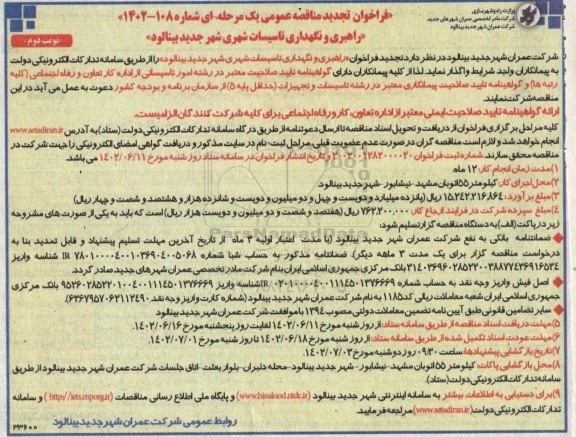 وزارت راه و شهرسازی
شرکت مادر تخصصی عمران شهرهای جدید
شرکت عمران شهر جدید بینالود
«فراخوان تجدید مناقصه عمومی یک مرحله-ای شماره ۱۰۸-۱۴۰۲»
«راهبری و نگهداری تاسیسات شهری شهر جدید بینالود»
«نوبت دوم»
شرکت عمران شهر جدید بینالود در نظر دارد تجدید فراخوان «راهبری و نگهداری تاسیسات شهری شهر جدید بینالود» را از طریق سامانه تدارکات الکترونیکی دولت
به پیمانکاران واجد شرایط واگذار نماید. لذا از کلیه پیمانکاران دارای گواهینامه تایید صلاحیت معتبر در رشته امور تاسیساتی از اداره کار تعاون و رفاه اجتماعی (کلیه
رتبه ها) و گواهینامه تایید صلاحیت پیمانکاری معتبر در رشته تاسیسات و تجهیزات (حداقل پایه ۵) از سازمان برنامه و بودجه کشور دعوت به عمل می آید در این
مناقصه شرکت نمایند.
ارائه گواهینامه تایید صلاحیت ایمنی معتبر از اداره تعاون، کار و رفاه اجتماعی برای کلیه شرکت کنندگان الزامیست.
کلیه مراحل برگزاری فراخوان از دریافت و تحویل اسناد مناقصه تا ارسال دعوتنامه از طریق درگاه سامانه تدارکات الکترونیکی دولت (ستاد) به آدرس www.setadiran.ir
انجام خواهد شد و لازم است مناقصه گران در صورت عدم عضویت قبلی، مراحل ثبت-نام در سایت مذکور و دریافت گواهی امضای الکترونیکی را جهت شرکت در
مناقصه محقق سازند. شماره ثبت فراخوان ۲۰۰۲۰۰۱۲۸۲۰۰۰۰۲۰ و تاریخ انتشار فراخوان در سامانه ستاد روز شنبه مورخ ۱۴۰۲/۰۶/۱۱ می باشد.
۱) مدت زمان انجام کار: ۱۲ ماه.
۲) محل اجرای کار: کیلومتر ۵۵ اتوبان مشهد-نیشابور-شهر جدید بینالود
۳) مبلغ برآورد: ۱۵,۲۴۲,۲۱۶,۸۶۴ ریال (پانزده میلیارد و دویست و چهل و دو میلیون و دویست و شانزده هزار و هشتصد و شصت و چهار ریال)
۴) مبلغ سپرده شرکت در فرایند ارجاع کار: ۷۶۲,۲۰۰,۰۰۰ ریال (هفتصد و شصت و دو میلیون و دویست هزار ریال) است که باید به یکی از صورت های مشروحه
زیر در پاکت (الف) به دستگاه مناقصه گزار تسلیم شود:
ضمانتنامه بانکی به نفع شرکت عمران شهر جدید بینالود (با مدت اعتبار اولیه ۳ ماه از تاریخ آخرین مهلت تسلیم پیشنهاد و قابل تمدید بنا به
درخواست مناقصه گزار برای یک مدت ۳ ماهه دیگر). ضمانتنامه مذکور به حساب شبا شماره
بانک مرکزی جمهوری اسلامی ایران بنام شرکت مادر تخصصی عمران شهرهای جدید صادر گردد.
اصل فیش واریز وجه نقد به حساب شماره
بانک مرکزی
جمهوری اسلامی ایران شعبه معاملات ریالی کد ۱۱۸۵ به نام شرکت عمران شهر جدید بینالود
سایر تضامین قانونی طبق آیین نامه تضمین معاملات دولتی مصوب ۱۳۹۴ با موافقت شرکت عمران شهر جدید بینالود
۵) مهلت دریافت اسناد مناقصه از طریق سامانه ستاد: از روز شنبه مورخ ۱۴۰۲/۰۶/۱۱ لغایت روز پنجشنبه مورخ ۱۴۰۲/۰۶/۱۶.
۶) مهلت عودت اسناد تکمیل شده از طریق سامانه ستاد: از روز شنبه مورخ ۱۴۰۲/۰۶/۱۸ تا روز شنبه مورخ ۱۴۰۲/۰۷/۰۱.
۷) تاریخ بازگشایی پیشنهادها: ساعت ۰۹:۳۰ روز دوشنبه مورخ ۱۴۰۲/۰۷/۰۳.
۸) محل بازگشایی پاکات: کیلومتر ۵۵ اتوبان مشهد-نیشابور-شهر جدید بینالود-محله دلبران-بلوار بعثت-اتاق جلسات شرکت عمران شهر جدید بینالود از طریق
سامانه تدارکات الکترونیکی دولت (ستاد).
۹) برای دستیابی به اطلاعات بیشتر به سامانه اینترنتی شهر جدید بینالود (www.binalood.ntdc.ir) و پایگاه ملی اطلاع رسانی مناقصات (http://iets.mporg.ir) و سامانه
تدارکات الکترونیکی دولت (www.setadiran.ir) مراجعه فرمایید.
روابط عمومی شرکت عمران شهر جدید بینالود
۳۳۶۰۰
ParsNamadData